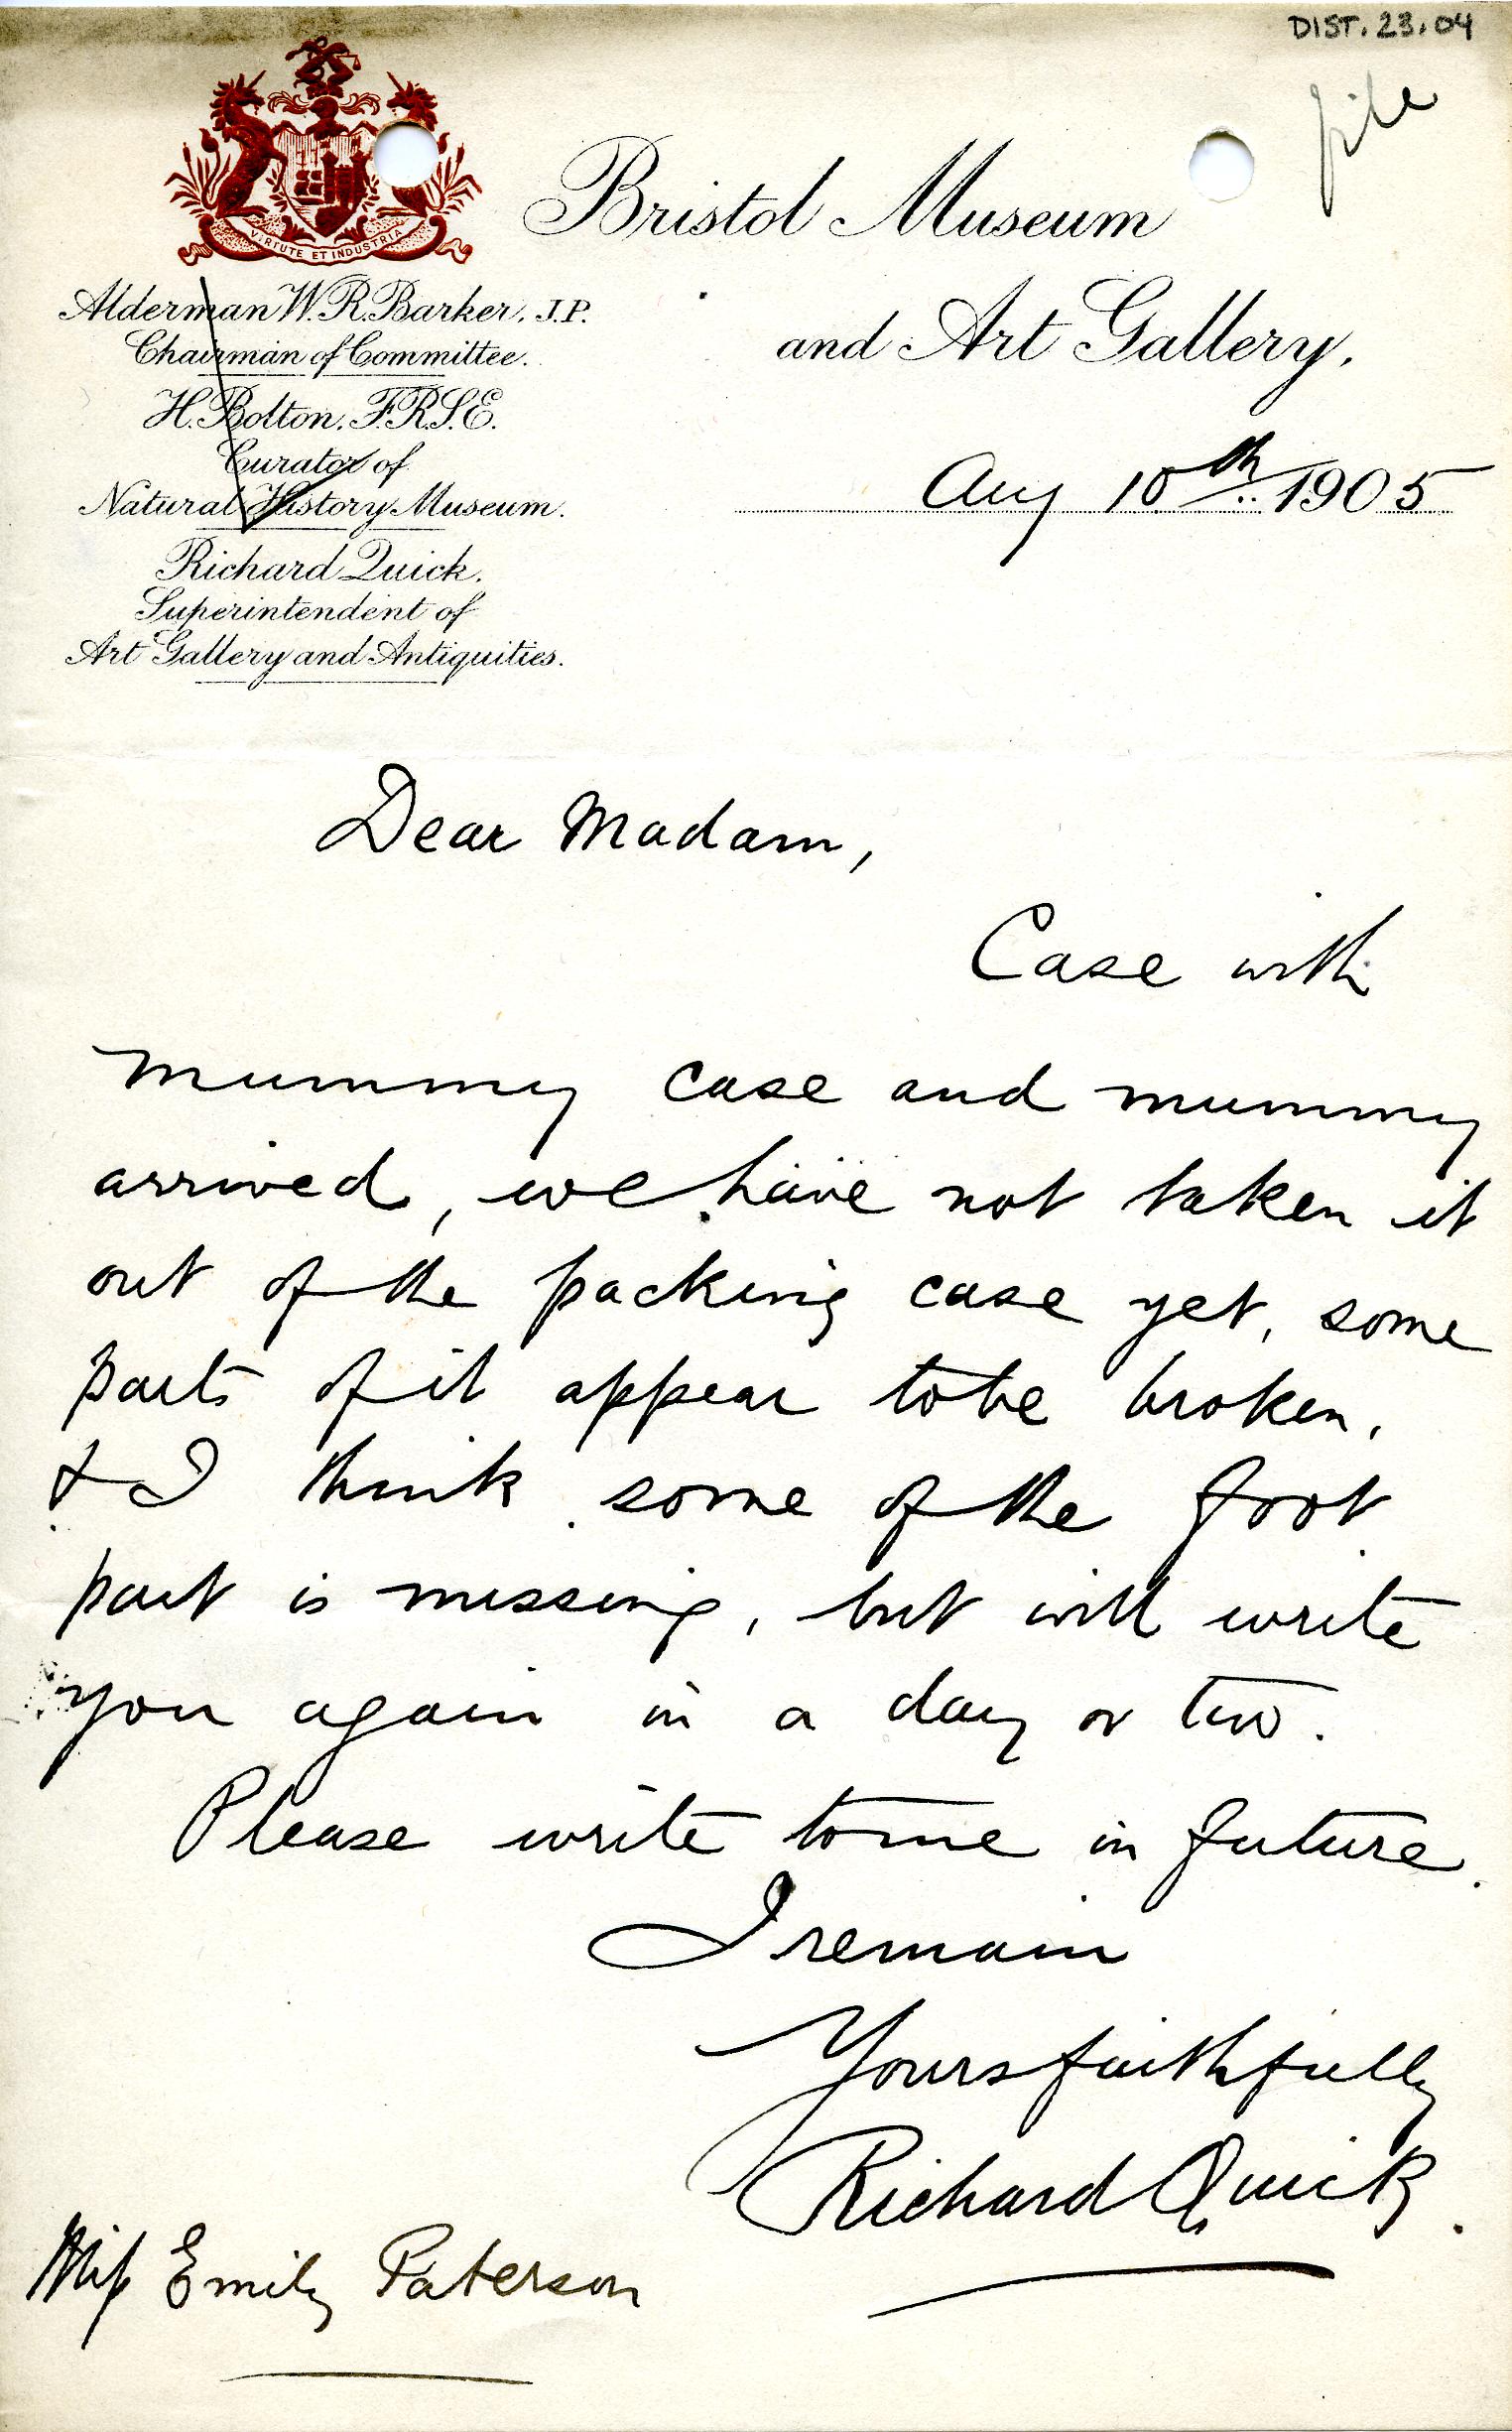 DIST. 23.04
file
VIRTUTE ET INDUSTRIA
Bristol Museum
and Art Gallery.
Alderman W. R. Barker, J.P.
Chairman of Committee.
H. Bolton, F.R.S.E.
Curator of
Natural History Museum.
Richard Quick.
Superintendent of
Art Gallery and Antiquities.
Aug 10th 1905
Dear Madam,
Case with
mummy case and mummy
arrived, we have not taken it
out of the packing case yet, some
parts of it appear to be broken,
& I think some of the foot
part is missing, but will write
you again in a day or two.
Please write to me in future.
I remain
Yours faithfully
Richard Quick.
Miss Emily Paterson